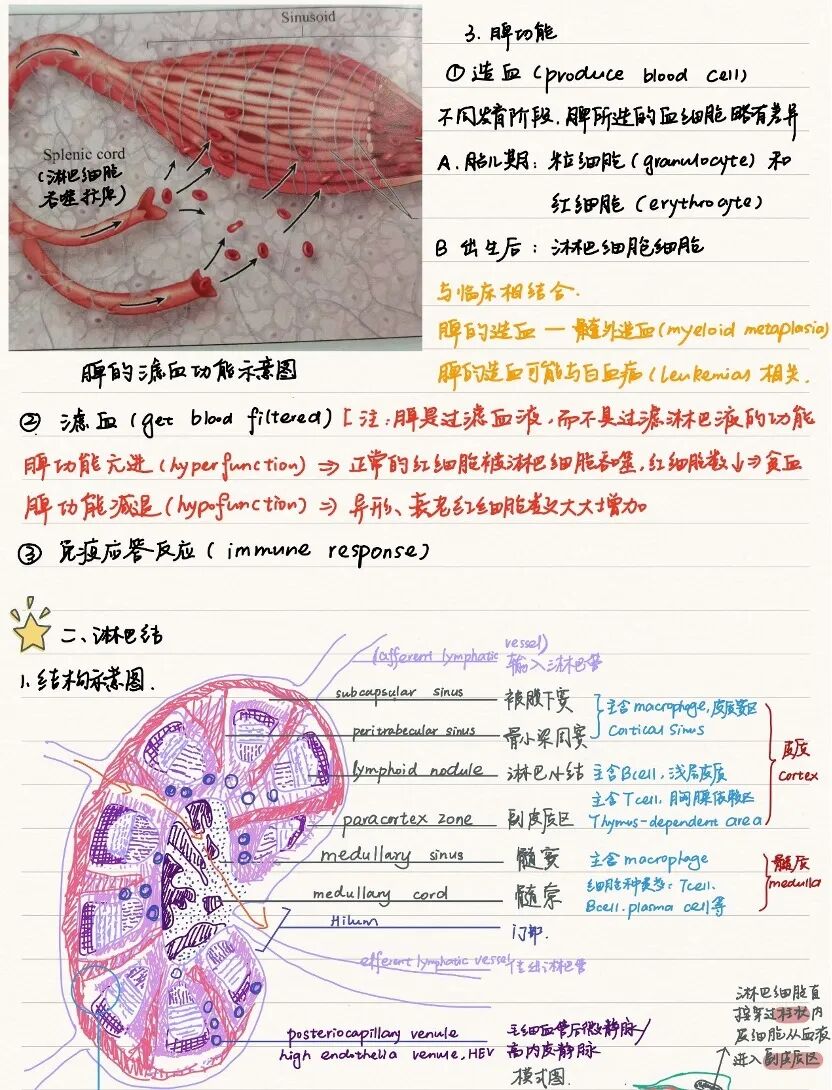 Sinusoid
Splenic cord
(淋巴细胞
吞噬抗原)
脾的滤血功能示意图
3. 脾功能
① 造血 (produce blood cell)
不同发育阶段, 脾所造的血细胞略有差异
A. 胎儿期: 粒细胞 (granulocyte) 和
红细胞 (erythrocyte)
B 出生后: 淋巴细胞细胞
与临床相结合.
脾的造血 — 髓外造血 (myeloid metaplasia)
脾的造血可能与白血病 (leukemias 相关.
② 滤血 (get blood filtered) [注: 脾是过滤血液, 而不具过滤淋巴液的功能
脾功能亢进 (hyperfunction) ⇒ 正常的红细胞被淋巴细胞吞噬, 红细胞数↓⇒贫血
脾功能减退 (hypofunction) ⇒ 异形、衰老红细胞数大大增加
③ 免疫应答反应 ( immune response)
二、淋巴结
1. 结构示意图.
(afferent lymphatic vessel)
输入淋巴管
subcapsular sinus 被膜下窦
peritrabecular sinus 骨小梁周窦
主含 macrophage, 皮质窦区
Cortical sinus
lymphoid nodule 淋巴小结 主含Bcell, 浅层皮质
paracortex zone 副皮质区
主含Tcell, 胸腺依赖区
Thymus-dependent area
皮质
cortex
medullary sinus 髓窦 主含 macrophage
medullary cord 髓索
细胞种类多: Tcell.
Bcell. plasma cell等
髓质
medulla
Hilum 门部.
efferent lymphatic vessel 传出淋巴管
posteriocapillary venule
high endothelia venule, HEV
毛细血管后微静脉/
高内皮静脉
模式图.
淋巴细胞直
接穿过柱状内
皮细胞从血液
进入副皮质区